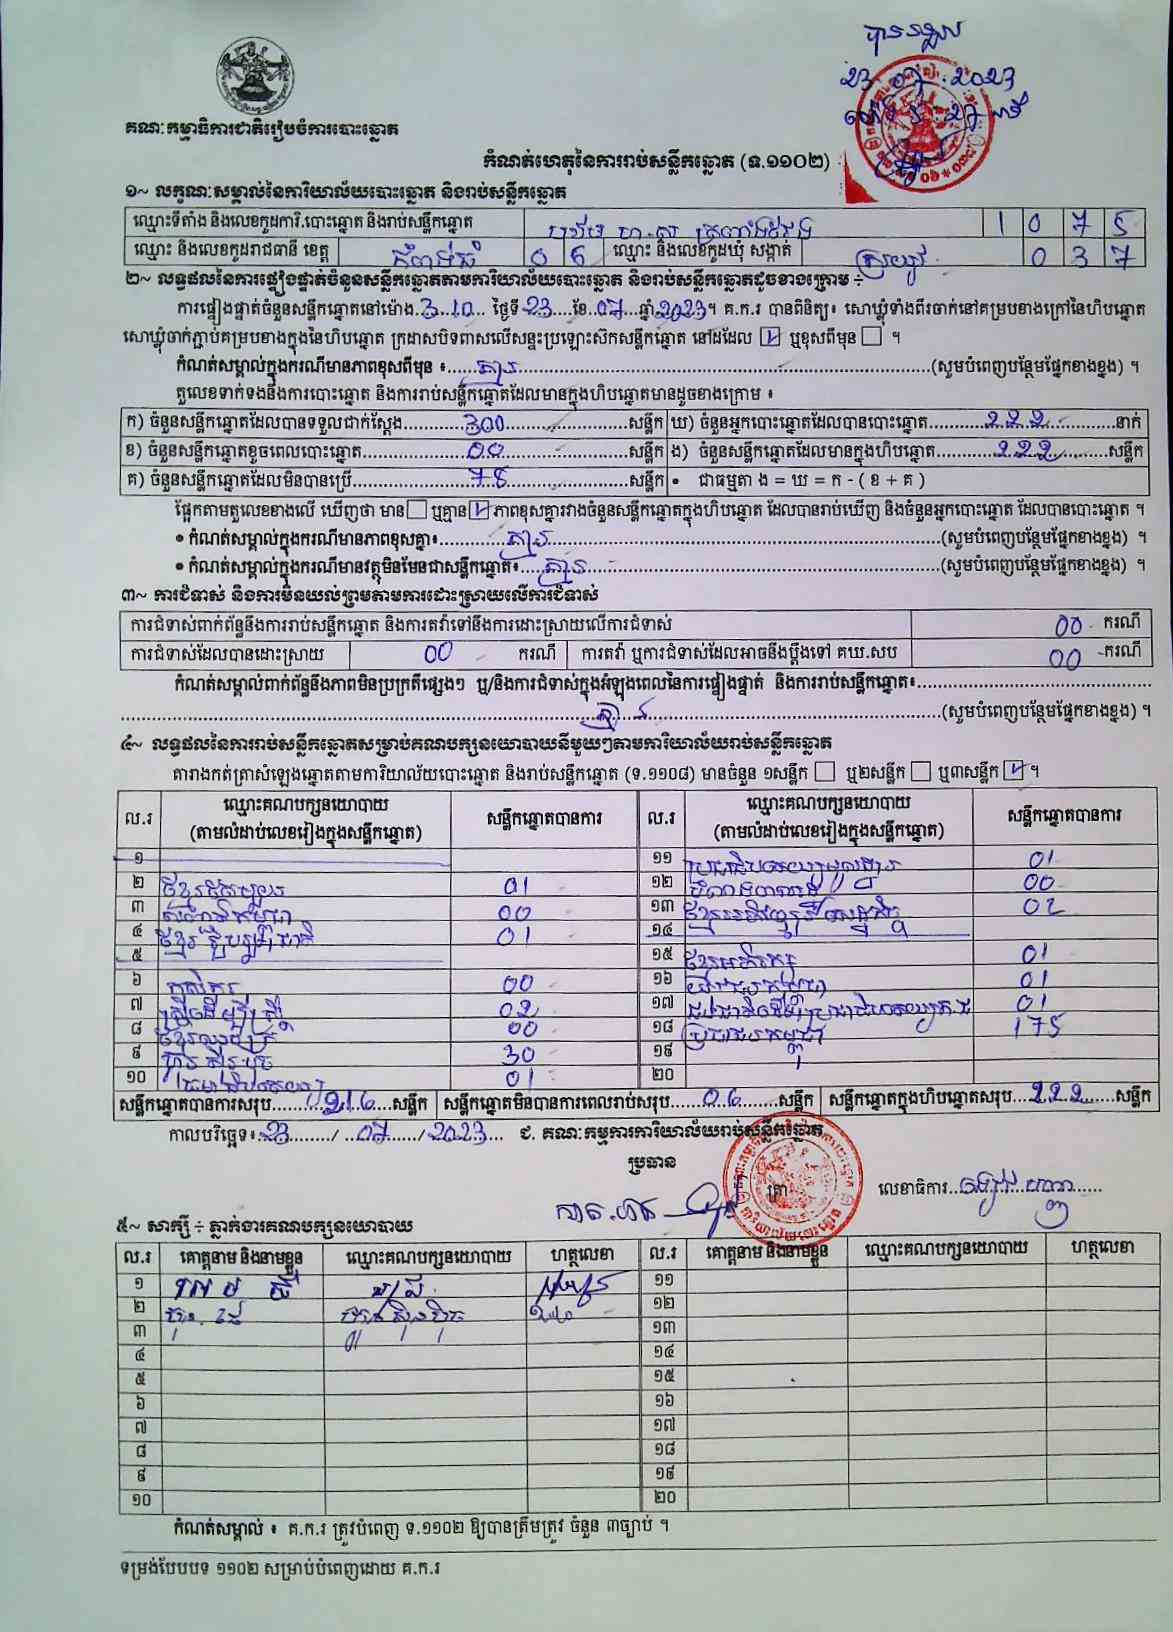 បានទទួល
23 .07 . 2023
គណៈកម្មាធិការជាតិរៀបចំការបោះឆ្នោត
កំណត់ហេតុនៃការរាប់សន្លឹកឆ្នោត (ទ.១១០២)
១~ លក្ខណៈសម្គាល់នៃការិយាល័យបោះឆ្នោត និងរាប់សន្លឹកឆ្នោត
ឈ្មោះទីតាំង និងលេខកូដការិ.បោះឆ្នោត និងរាប់សន្លឹកឆ្នោត 1 0 7 5
ឈ្មោះ និងលេខកូដរាជធានី ខេត្ត កំពង់ធំ 0 6 ឈ្មោះ និងលេខកូដឃុំ សង្កាត់ ស្រយ៉ូវ 0 3 7
២~ លទ្ធផលនៃការផ្ទៀងផ្ទាត់ចំនួនសន្លឹកឆ្នោតតាមការិយាល័យបោះឆ្នោត និងរាប់សន្លឹកឆ្នោតដូចខាងក្រោម ÷
ការផ្ទៀងផ្ទាត់ចំនួនសន្លឹកឆ្នោតនៅម៉ោង..3..10.... ថ្ងៃទី 23....ខែ..07....ឆ្នាំ 2023។ គ.ក.រ បានពិនិត្យ៖ សោឃ្លុំទាំងពីរចាក់នៅគម្របខាងក្រៅនៃហិបឆ្នោត
សោឃ្លុំចាក់ភ្ជាប់គម្របខាងក្នុងនៃហិបឆ្នោត ក្រដាសបិទពាសលើសន្ទះប្រឡោះស៊កសន្លឹកឆ្នោត នៅដដែល ☑ ឬខុសពីមុន ☐ ។
កំណត់សម្គាល់ក្នុងករណីមានភាពខុសពីមុន ៖......គ្មាន......(សូមបំពេញបន្ថែមផ្នែកខាងខ្នង) ។
តួលេខទាក់ទងនឹងការបោះឆ្នោត និងការរាប់សន្លឹកឆ្នោតដែលមានក្នុងហិបឆ្នោតមានដូចខាងក្រោម ៖
ក) ចំនួនសន្លឹកឆ្នោតដែលបានទទួលជាក់ស្តែង............300............សន្លឹក ឃ) ចំនួនអ្នកបោះឆ្នោតដែលបានបោះឆ្នោត............222............នាក់
ខ) ចំនួនសន្លឹកឆ្នោតខូចពេលបោះឆ្នោត............00............សន្លឹក ង) ចំនួនសន្លឹកឆ្នោតដែលមានក្នុងហិបឆ្នោត............222............សន្លឹក
គ) ចំនួនសន្លឹកឆ្នោតដែលមិនបានប្រើ............78............សន្លឹក • ជាធម្មតា ង = ឃ = ក - ( ខ + គ )
ផ្អែកតាមតួលេខខាងលើ ឃើញថា មាន ☐ ឬគ្មាន ☑ ភាពខុសគ្នារវាងចំនួនសន្លឹកឆ្នោតក្នុងហិបឆ្នោត ដែលបានរាប់ឃើញ និងចំនួនអ្នកបោះឆ្នោត ដែលបានបោះឆ្នោត ។
• កំណត់សម្គាល់ក្នុងករណីមានភាពខុសគ្នា៖......គ្មាន......(សូមបំពេញបន្ថែមផ្នែកខាងខ្នង) ។
• កំណត់សម្គាល់ក្នុងករណីមានវត្ថុមិនមែនជាសន្លឹកឆ្នោត៖......គ្មាន......(សូមបំពេញបន្ថែមផ្នែកខាងខ្នង) ។
៣~ ការជំទាស់ និងការមិនយល់ព្រមតាមការដោះស្រាយលើការជំទាស់
ការជំទាស់ពាក់ព័ន្ធនឹងការរាប់សន្លឹកឆ្នោត និងការតវ៉ាទៅនឹងការដោះស្រាយលើការជំទាស់ 00 ករណី
ការជំទាស់ដែលបានដោះស្រាយ 00 ករណី ការតវ៉ា ឬការជំទាស់ដែលអាចនឹងប្តឹងទៅ គឃ.សប 00 ករណី
កំណត់សម្គាល់ពាក់ព័ន្ធនឹងភាពមិនប្រក្រតីផ្សេងៗ ឬ/និងការជំទាស់ក្នុងអំឡុងពេលនៃការផ្ទៀងផ្ទាត់ និងការរាប់សន្លឹកឆ្នោត៖............
............គ្មាន............(សូមបំពេញបន្ថែមផ្នែកខាងខ្នង) ។
៤~ លទ្ធផលនៃការរាប់សន្លឹកឆ្នោតសម្រាប់គណបក្សនយោបាយនីមួយៗតាមការិយាល័យរាប់សន្លឹកឆ្នោត
តារាងកត់ត្រាសំឡេងឆ្នោតតាមការិយាល័យបោះឆ្នោត និងរាប់សន្លឹកឆ្នោត (ទ.១១០៨) មានចំនួន ១សន្លឹក ☐ ឬ២សន្លឹក ☐ ឬ៣សន្លឹក ☑ ។
ល.រ ឈ្មោះគណបក្សនយោបាយ (តាមលំដាប់លេខរៀងក្នុងសន្លឹកឆ្នោត) សន្លឹកឆ្នោតបានការ ល.រ ឈ្មោះគណបក្សនយោបាយ (តាមលំដាប់លេខរៀងក្នុងសន្លឹកឆ្នោត) សន្លឹកឆ្នោតបានការ
១ ១១ ប្រជាធិបតេយ្យមូលដ្ឋាន 01
២ 01 ១២ 00
៣ 00 ១៣ ខ្មែរអភិវឌ្ឍន៍សេដ្ឋកិច្ច 02
៤ 01 ១៤
៥ ១៥ 01
៦ កសិករ 00 ១៦ 01
៧ ស្ត្រីដើម្បីស្ត្រី 02 ១៧ 01
៨ 00 ១៨ ប្រជាជនកម្ពុជា 175
៩ ហ៊្វុនស៊ិនប៉ិច 30 ១៩
១០ 01 ២០
សន្លឹកឆ្នោតបានការសរុប......216......សន្លឹក សន្លឹកឆ្នោតមិនបានការពេលរាប់សរុប......06......សន្លឹក សន្លឹកឆ្នោតក្នុងហិបឆ្នោតសរុប...222......សន្លឹក
កាលបរិច្ឆេទ៖ 23......../...07....../2023.... ជ. គណៈកម្មការការិយាល័យរាប់សន្លឹកឆ្នោត
ប្រធាន
ត្រា
លេខាធិការ
៥~ សាក្សី ÷ ភ្នាក់ងារគណបក្សនយោបាយ
ល.រ គោត្តនាម និងនាមខ្លួន ឈ្មោះគណបក្សនយោបាយ ហត្ថលេខា ល.រ គោត្តនាម និងនាមខ្លួន ឈ្មោះគណបក្សនយោបាយ ហត្ថលេខា
១ ១១
២ ហ៊្វុនស៊ិនប៉ិច ១២
៣ ១៣
៤ ១៤
៥ ១៥
៦ ១៦
៧ ១៧
៨ ១៨
៩ ១៩
១០ ២០
កំណត់សម្គាល់ ៖ គ.ក.រ ត្រូវបំពេញ ទ.១១០២ ឱ្យបានត្រឹមត្រូវ ចំនួន ៣ច្បាប់ ។
ទម្រង់បែបបទ ១១០២ សម្រាប់បំពេញដោយ គ.ក.រ